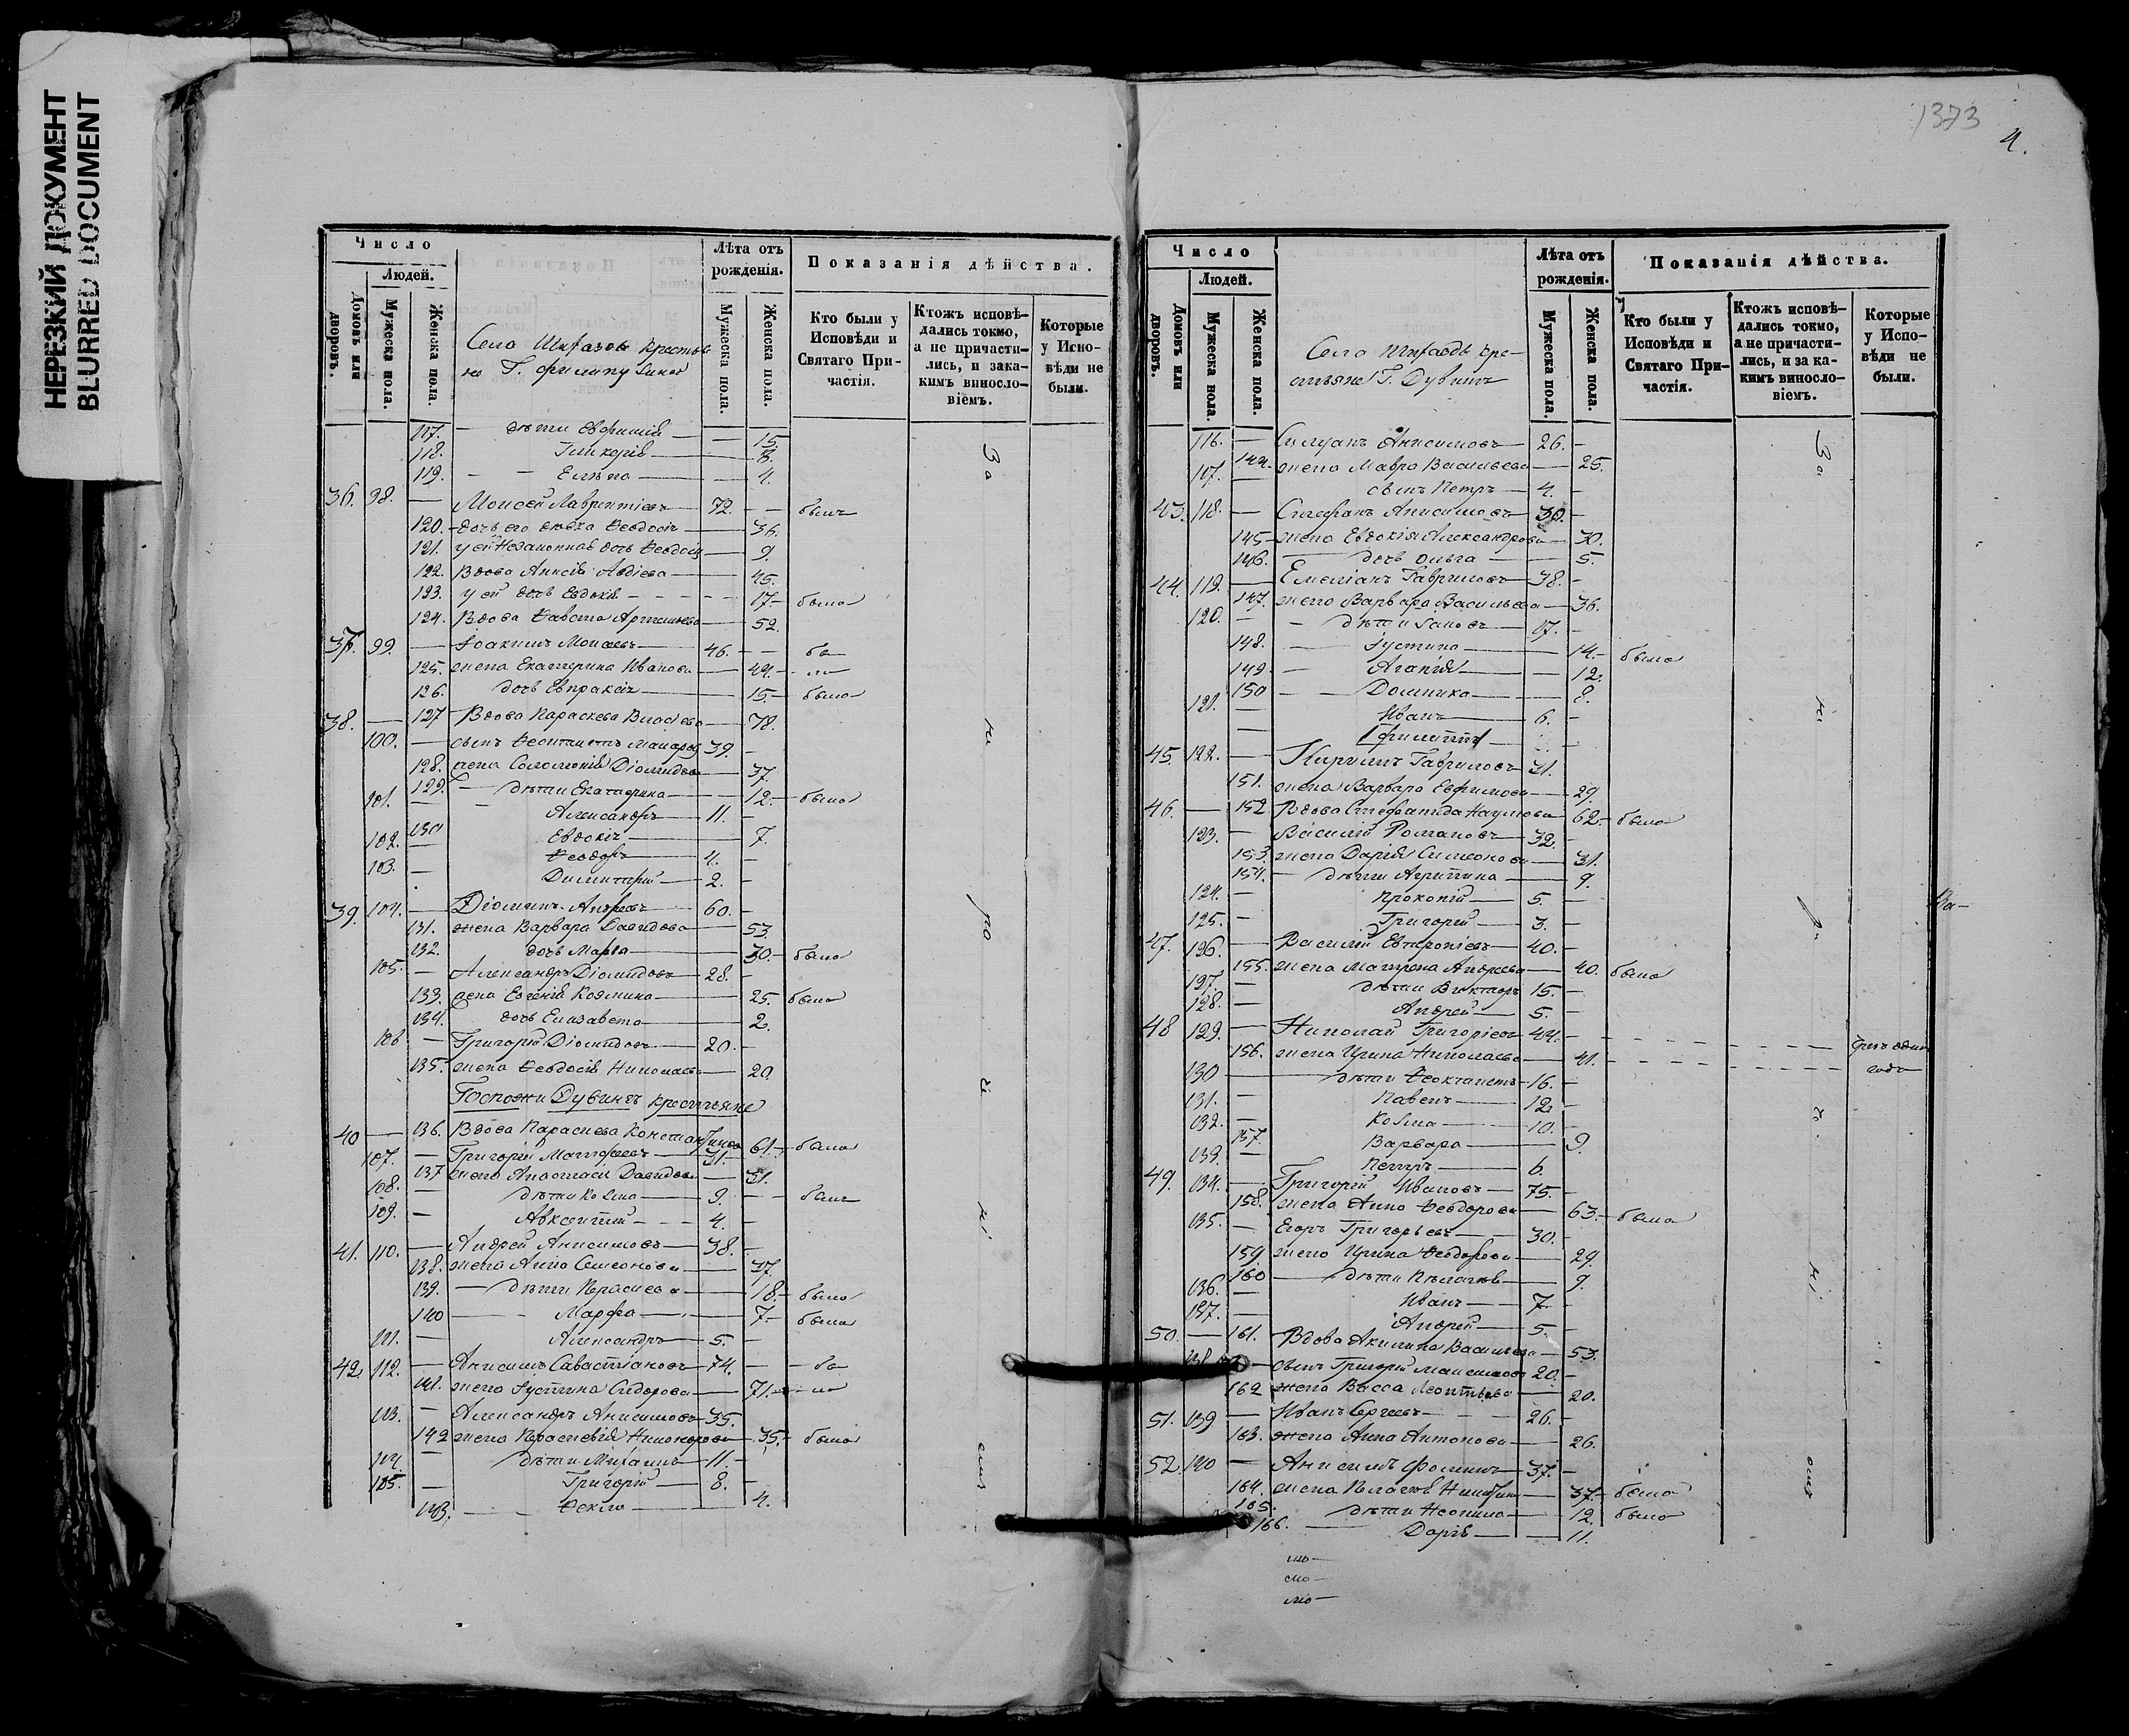 НЕРЕЗКИЙ ДОКУМЕНТ
BLURRED DOCUMENT
1373
4.
Число
Людей.
Домовъ или дворовъ.
Мужеска пола.
Женска пола.
Село
Лѣта отъ рожденія.
Мужеска пола.
Женска пола.
Показанія дѣйства.
Кто были у Исповѣди и Святаго Причастія.
Ктожъ исповѣдались токмо, а не причастились, и за какимъ винословіемъ.
Которые у Исповѣди не были.
117. — дѣти — 15.
118. — 8.
119. — Елена — 4.
36. 98. — Моисей Лаврентіевъ — 72. — былъ
120. дочь его Ѳеодосія — 36.
121. у ей незаконная дочь Ѳеодосія — 9.
122. Вдова Анисія Авдіева — 45.
123. у ей дочь Евдокія — 17. — была
124. Вдова — 52.
37. 99. — Іоакимъ Моисеевъ — 46. — бы
125. жена Екатерина Иванова — 44. — ли
126. дочь Евпраксія — 15. — была
38. — 127 Вдова Параскева Власіева — 78.
100. — сынъ Ѳеоктистъ — 39.
128. жена Соломонія Діомидова — 37.
129. — дѣти Екатерина — 12. — была
101. — Александръ — 11.
130 Евдокія — 7.
102. — Ѳеодоръ — 4.
103. — Димитрій — 2.
39. 104. — Діомидъ Андреевъ — 60.
131. жена Варвара Давидова — 53.
132. дочь Марѳа — 30. — была
105. — Александръ Діомидовъ — 28.
133. жена Евгенія Козмина — 25. была
134. дочь Елизавета — 2.
106 — Григорій Діомидовъ — 20.
135. жена Ѳеодосія Николаева — 20.
Госпожи Дувингъ крестьяне
40 — 136. Вдова Параскева Константинова — 61. — была
107. — Григорій Матфеевъ — 31.
137 жена Анастасія Давидова — 31.
108. — дѣти Козма — 9. — былъ
109. — Авксентій — 4.
41. 110. — Андрей Анисимовъ — 38.
138. жена Анна Симеонова — 37.
139. — дѣти Параскева — 18. — была
140 — Марфа — 7. — была
111. — Александръ — 5.
42. 112. — Анисимъ Савастіановъ — 74. — бы
141. жена Іустина Сидорова — 71. — ли
113. — Александръ Анисимовъ — 35.
142 жена Параскевія Никонорова — 35. — была
114. — дѣти Михаилъ — 11.
115. — Григорій — 8.
143. — Ѳекла — 4.
Число
Людей.
Домовъ или дворовъ.
Мужеска пола.
Женска пола.
Село
крестьяне Г. Дувингъ
Лѣта отъ рожденія.
Мужеска пола.
Женска пола.
Показанія дѣйства.
Кто были у Исповѣди и Святаго Причастія.
Ктожъ исповѣдались токмо, а не причастились, и за какимъ винословіемъ.
Которые у Исповѣди не были.
116. — Силуанъ Анисимовъ — 26.
144. жена Мавра Васильева — 25.
117. — сынъ Петръ — 4.
43. 118. — Стефанъ Анисимовъ — 30.
145 жена Евдокія Александрова — 30.
146. — дочь Ольга — 5.
44. 119. — Емеліанъ Гавриловъ — 38.
147. жена Варвара Васильева — 36.
120. — дѣти — 17.
148. — Іустина — 14. — была
149. — Агапія — 12.
150 — Домника — 8.
121. — Иванъ — 6.
— Филиппъ
45. 122. — Кириллъ Гавриловъ — 31.
151. жена Варвара Евфимова — 29.
46. — 152 Вдова Стефанида Наумова — 62. — была
123. — Василій Романовъ — 32.
153. жена Дарія Симеонова — 31.
154. — дѣти Агрипина — 9.
124. — Прокопій — 5.
125. — Григорій — 3.
47. 126. — Василій Евтропіевъ — 40.
155. жена Матрена Андреева — 40. была
127. — дѣти Викторъ — 15.
128. — Андрей — 5.
48 129. — Николай Григоріевъ — 44.
156. жена Ирина Николаева — 41.
130 — дѣти Ѳеоктистъ — 16.
131. — Павелъ — 12.
132. — Козма — 10.
157. Варвара — 9.
133. — Петръ — 6.
49. 134. — Григорій Ивановъ — 75.
158. жена Анна Ѳеодорова — 63. — была
135. — Егоръ Григорьевъ — 30.
159 жена Ирина Ѳеодорова — 29.
160 — дѣти Пелагія — 9.
136. — Иванъ — 7.
137. — Андрей — 5.
50. — 161. Вдова Акилина Васильева — 53.
138 — сынъ Григорій — 20.
162 жена Васса Леонтьева — 20.
51. 139 — Иванъ Сергеевъ — 26.
163. жена Анна Антонова — 26.
52. 140 — Анисимъ Фоминъ — 37.
164. жена Пелагія Никитина — 37. — была
165. дѣти Неонила — 12. была
166. — Дарія — 11.